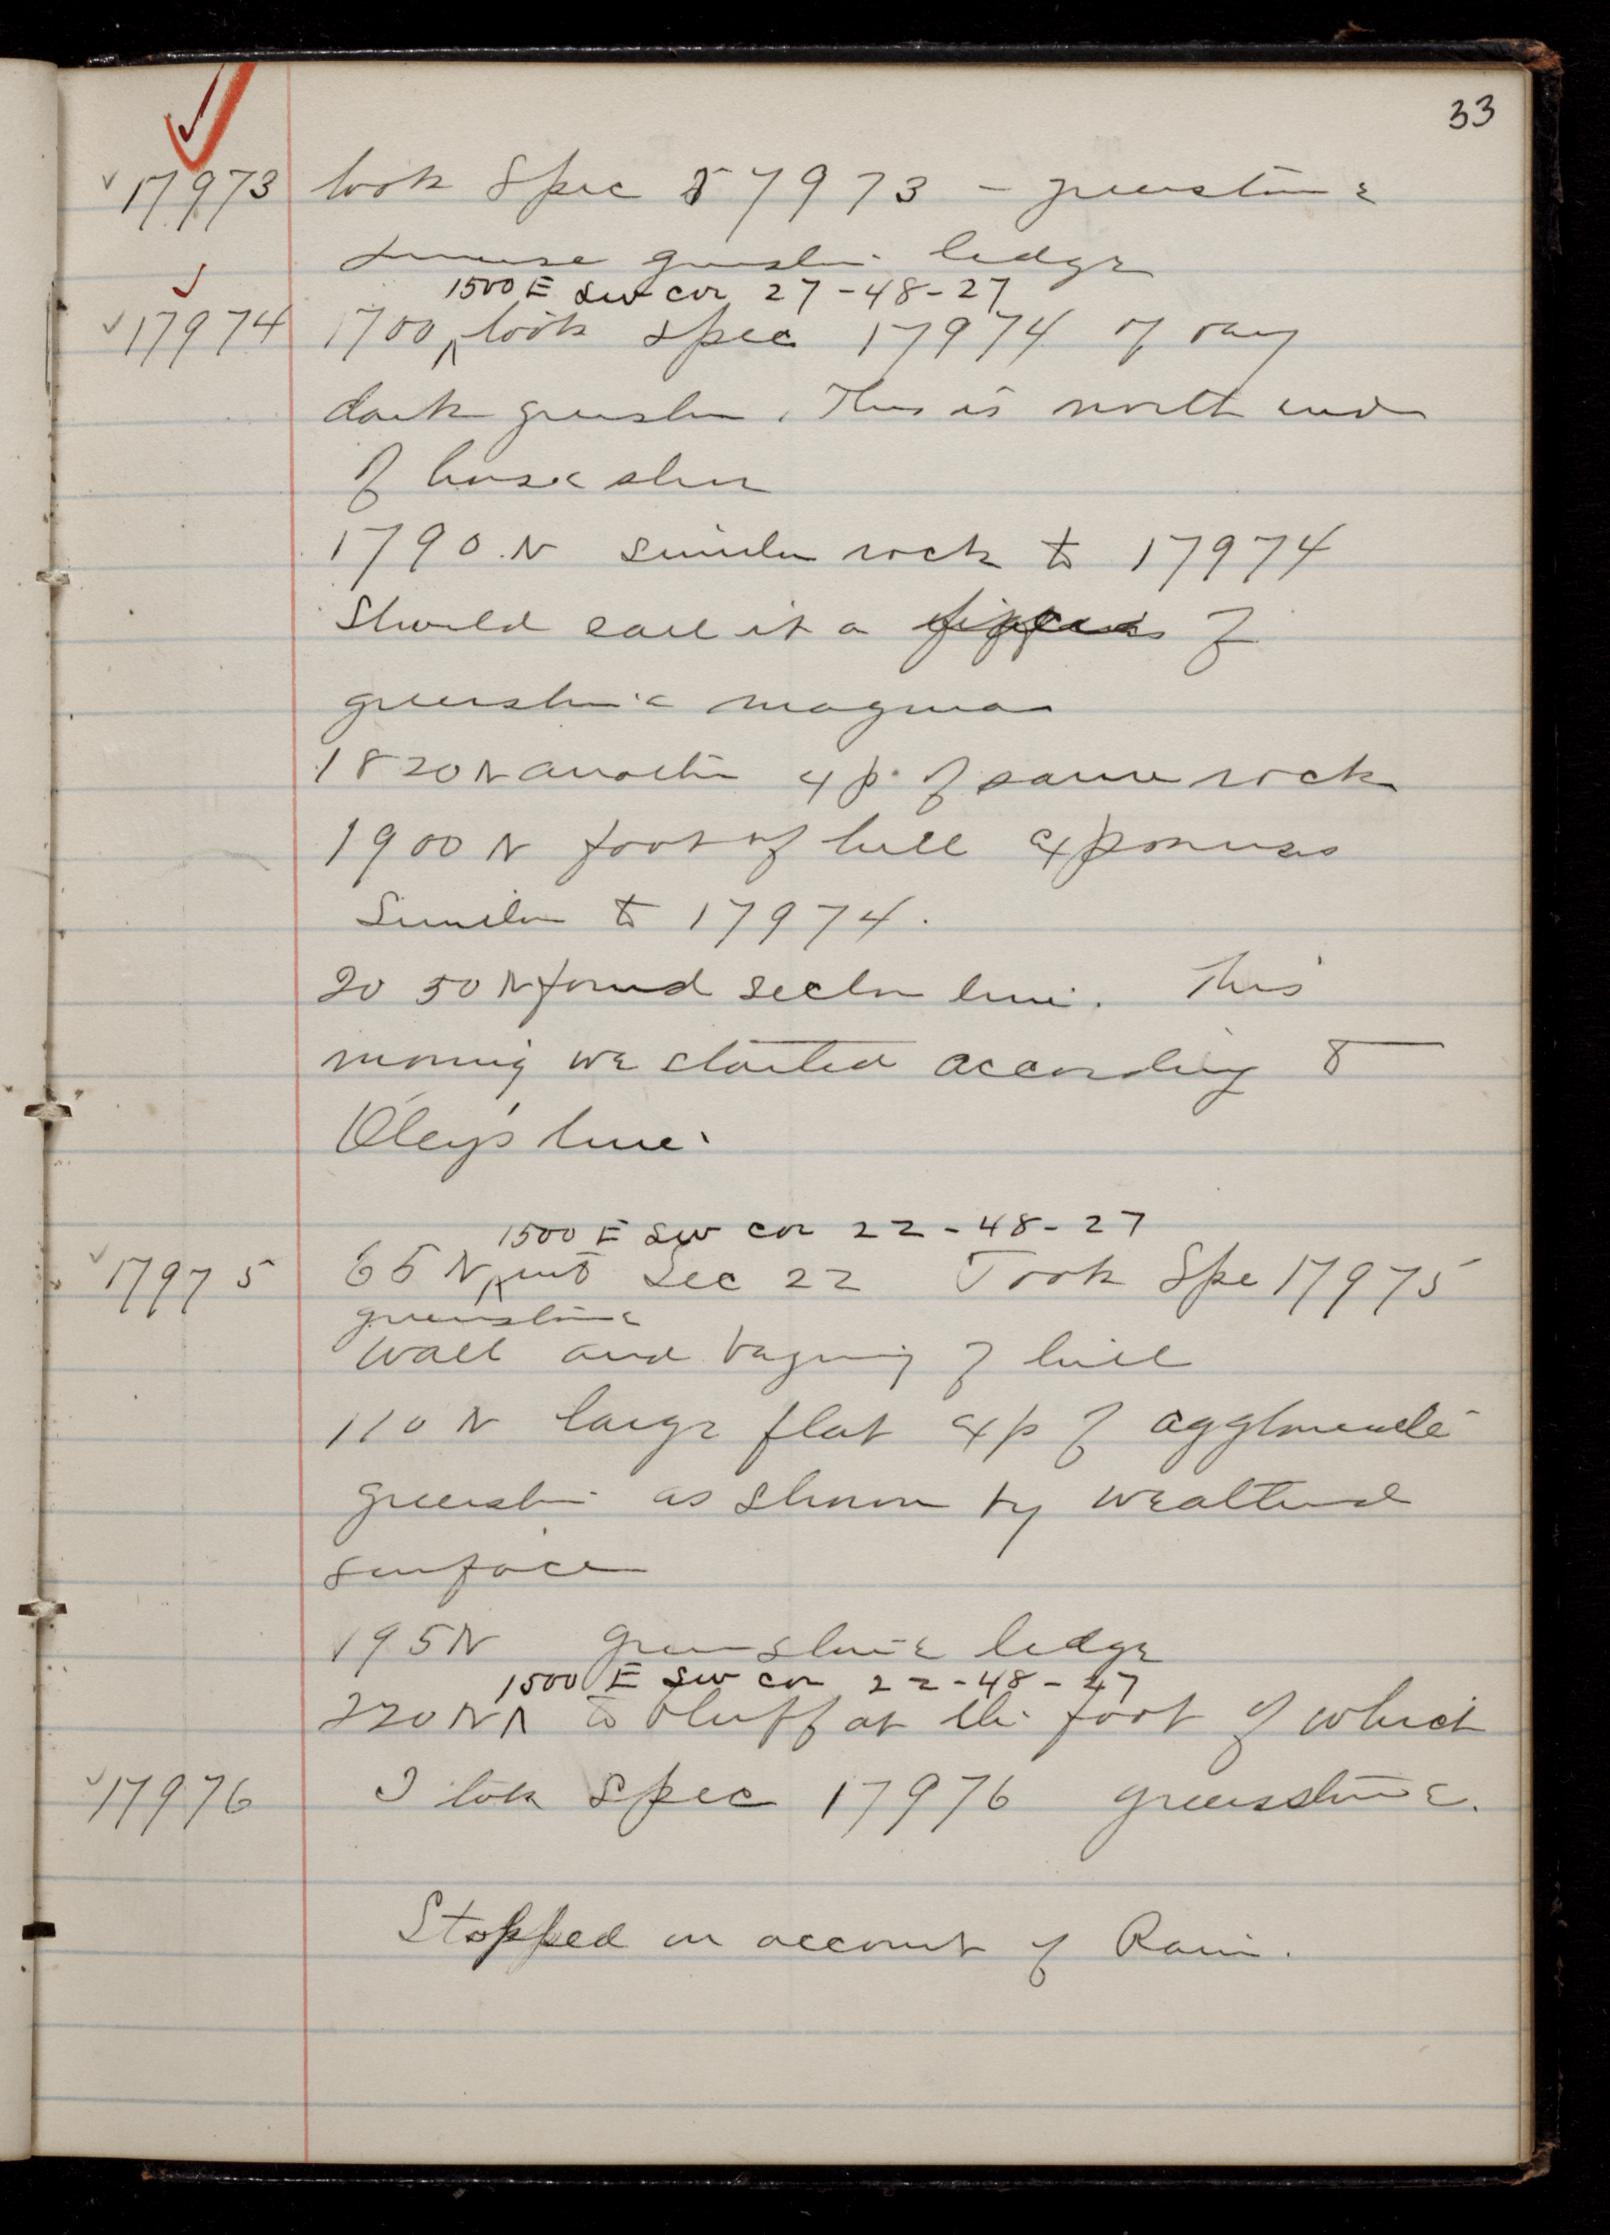 33
17973 took Spec 17973 - greenstone
greenstone ledge
1500 E SW cor 27-48-27
17974 1700 took spec 17974 of very
dark greenston. This is north end
of horse shoe
1790 N similar rock to 17974
Should call it a of
greenstone magma
1820 N another exp. of same rock
1900 N foot of hill exposures
Similar to 17974.
2050 N found section line. This
morning we started according to
Oley's line.
1500 E SW cor 22-48-27
17975 65 N into Sec 22 Took Spe 17975
greenstone
wall and begining of hill
110 N large flat exp of agglomerate
greenston as shown by weathered
surface
195 N greenstone ledge
1500 E SW cor 22-48-27
220 N to bluff at the foot of which
17976 I took spec 17976 greenstone.
Stopped on account of Rain.